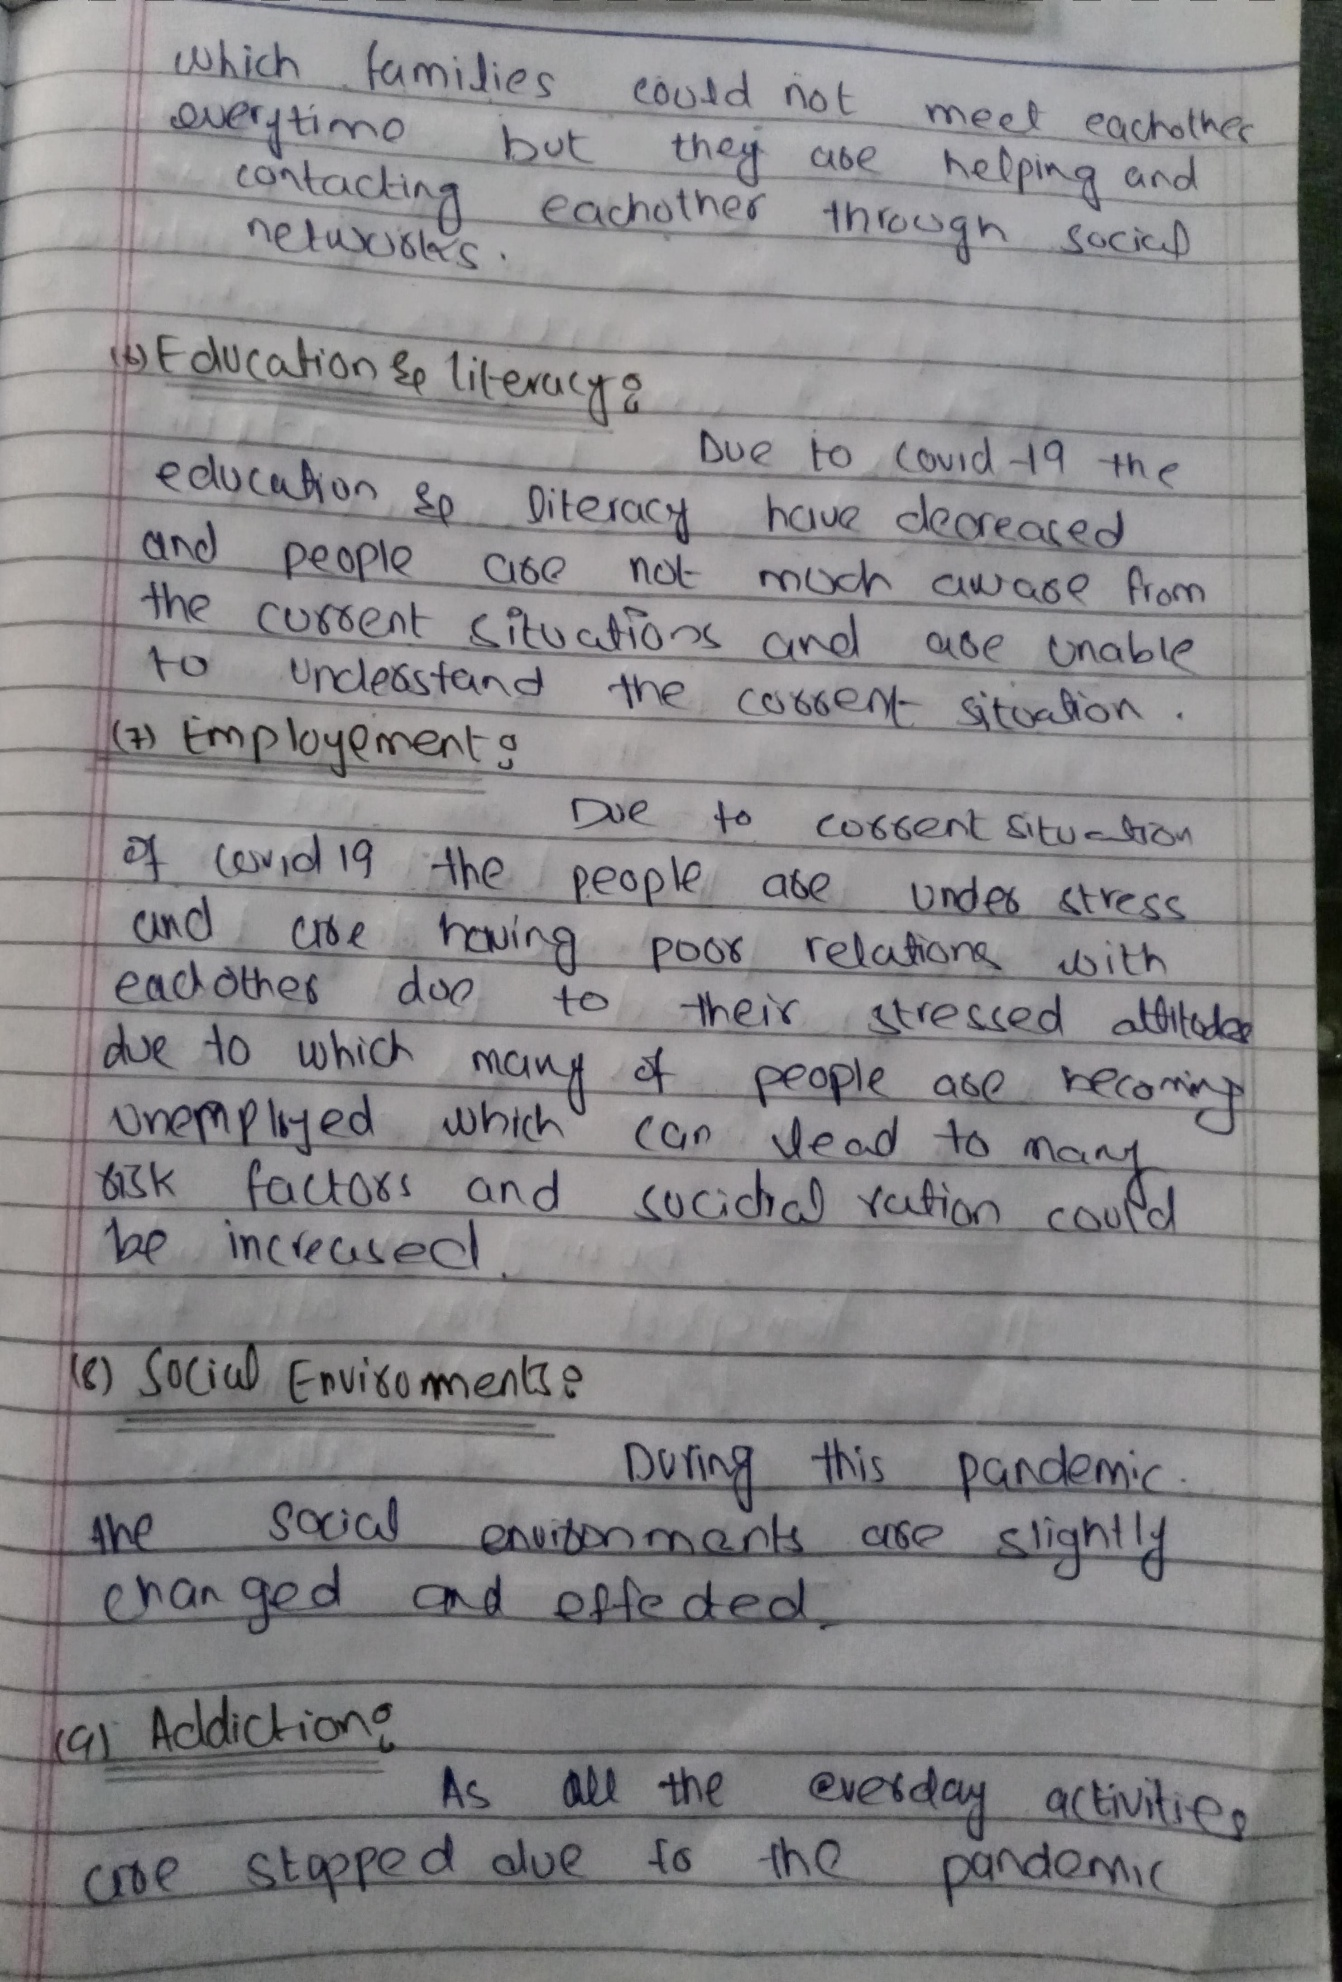 which families could not meet eachother
everytime but they are helping and
contacting eachother through social
networks.
(6) Education & literacy:
Due to covid-19 the
education & literacy have decreased
and people are not much aware from
the current situations and are unable
to understand the current situation.
(7) Employement:
Due to current situation
of covid 19 the people are under stress
and are having poor relations with
eachother due to their stressed attitudes
due to which many of people are becoming
unemployed which can lead to many
risk factors and sucidial ration could
be increased.
(8) Social Enviroments:
During this pandemic
the social environments are slightly
changed and effected.
(9) Addiction:
As all the everday activities
are stopped due to the pandemic